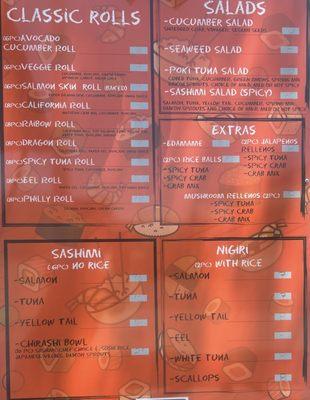 CLASSIC ROLLS
(6PC)AVOCADO
CUCUMBER ROLL
(6PC)VEGGIE ROLL
(6PC)SALMON SKIN ROLL (BAKED)
(6PC)CALIFORNIA ROLL
(8PC)RAIBOW ROLL
(8PC)DRAGON ROLL
(8PC)SPICY TUNA ROLL
(8PC)EEL ROLL
(8PC)PHILLY ROLL
SALADS
-CUCUMBER SALAD
-SEAWEED SALAD
-POKI TUNA SALAD
-SASHIMI SALAD (SPICY)
EXTRAS
-EDAMAME
(2PC) RICE BALLS
-SPICY TUNA
-SPICY CRAB
-CRAB MIX
(2PC) JALAPENOS
RELLENOS
-SPICY TUNA
-SPICY CRAB
-CRAB MIX
MUSHROOM RELLENOS (2PC)
-SPICY TUNA
-SPICY CRAB
-CRAB MIX
SASHIMI
(6PC) NO RICE
-SALMON
-TUNA
-YELLOW TAIL
-CHIRASHI BOWL
NIGIRI
(2PC) WITH RICE
-SALMON
-TUNA
-YELLOW TAIL
-EEL
-WHITE TUNA
-SCALLOPS